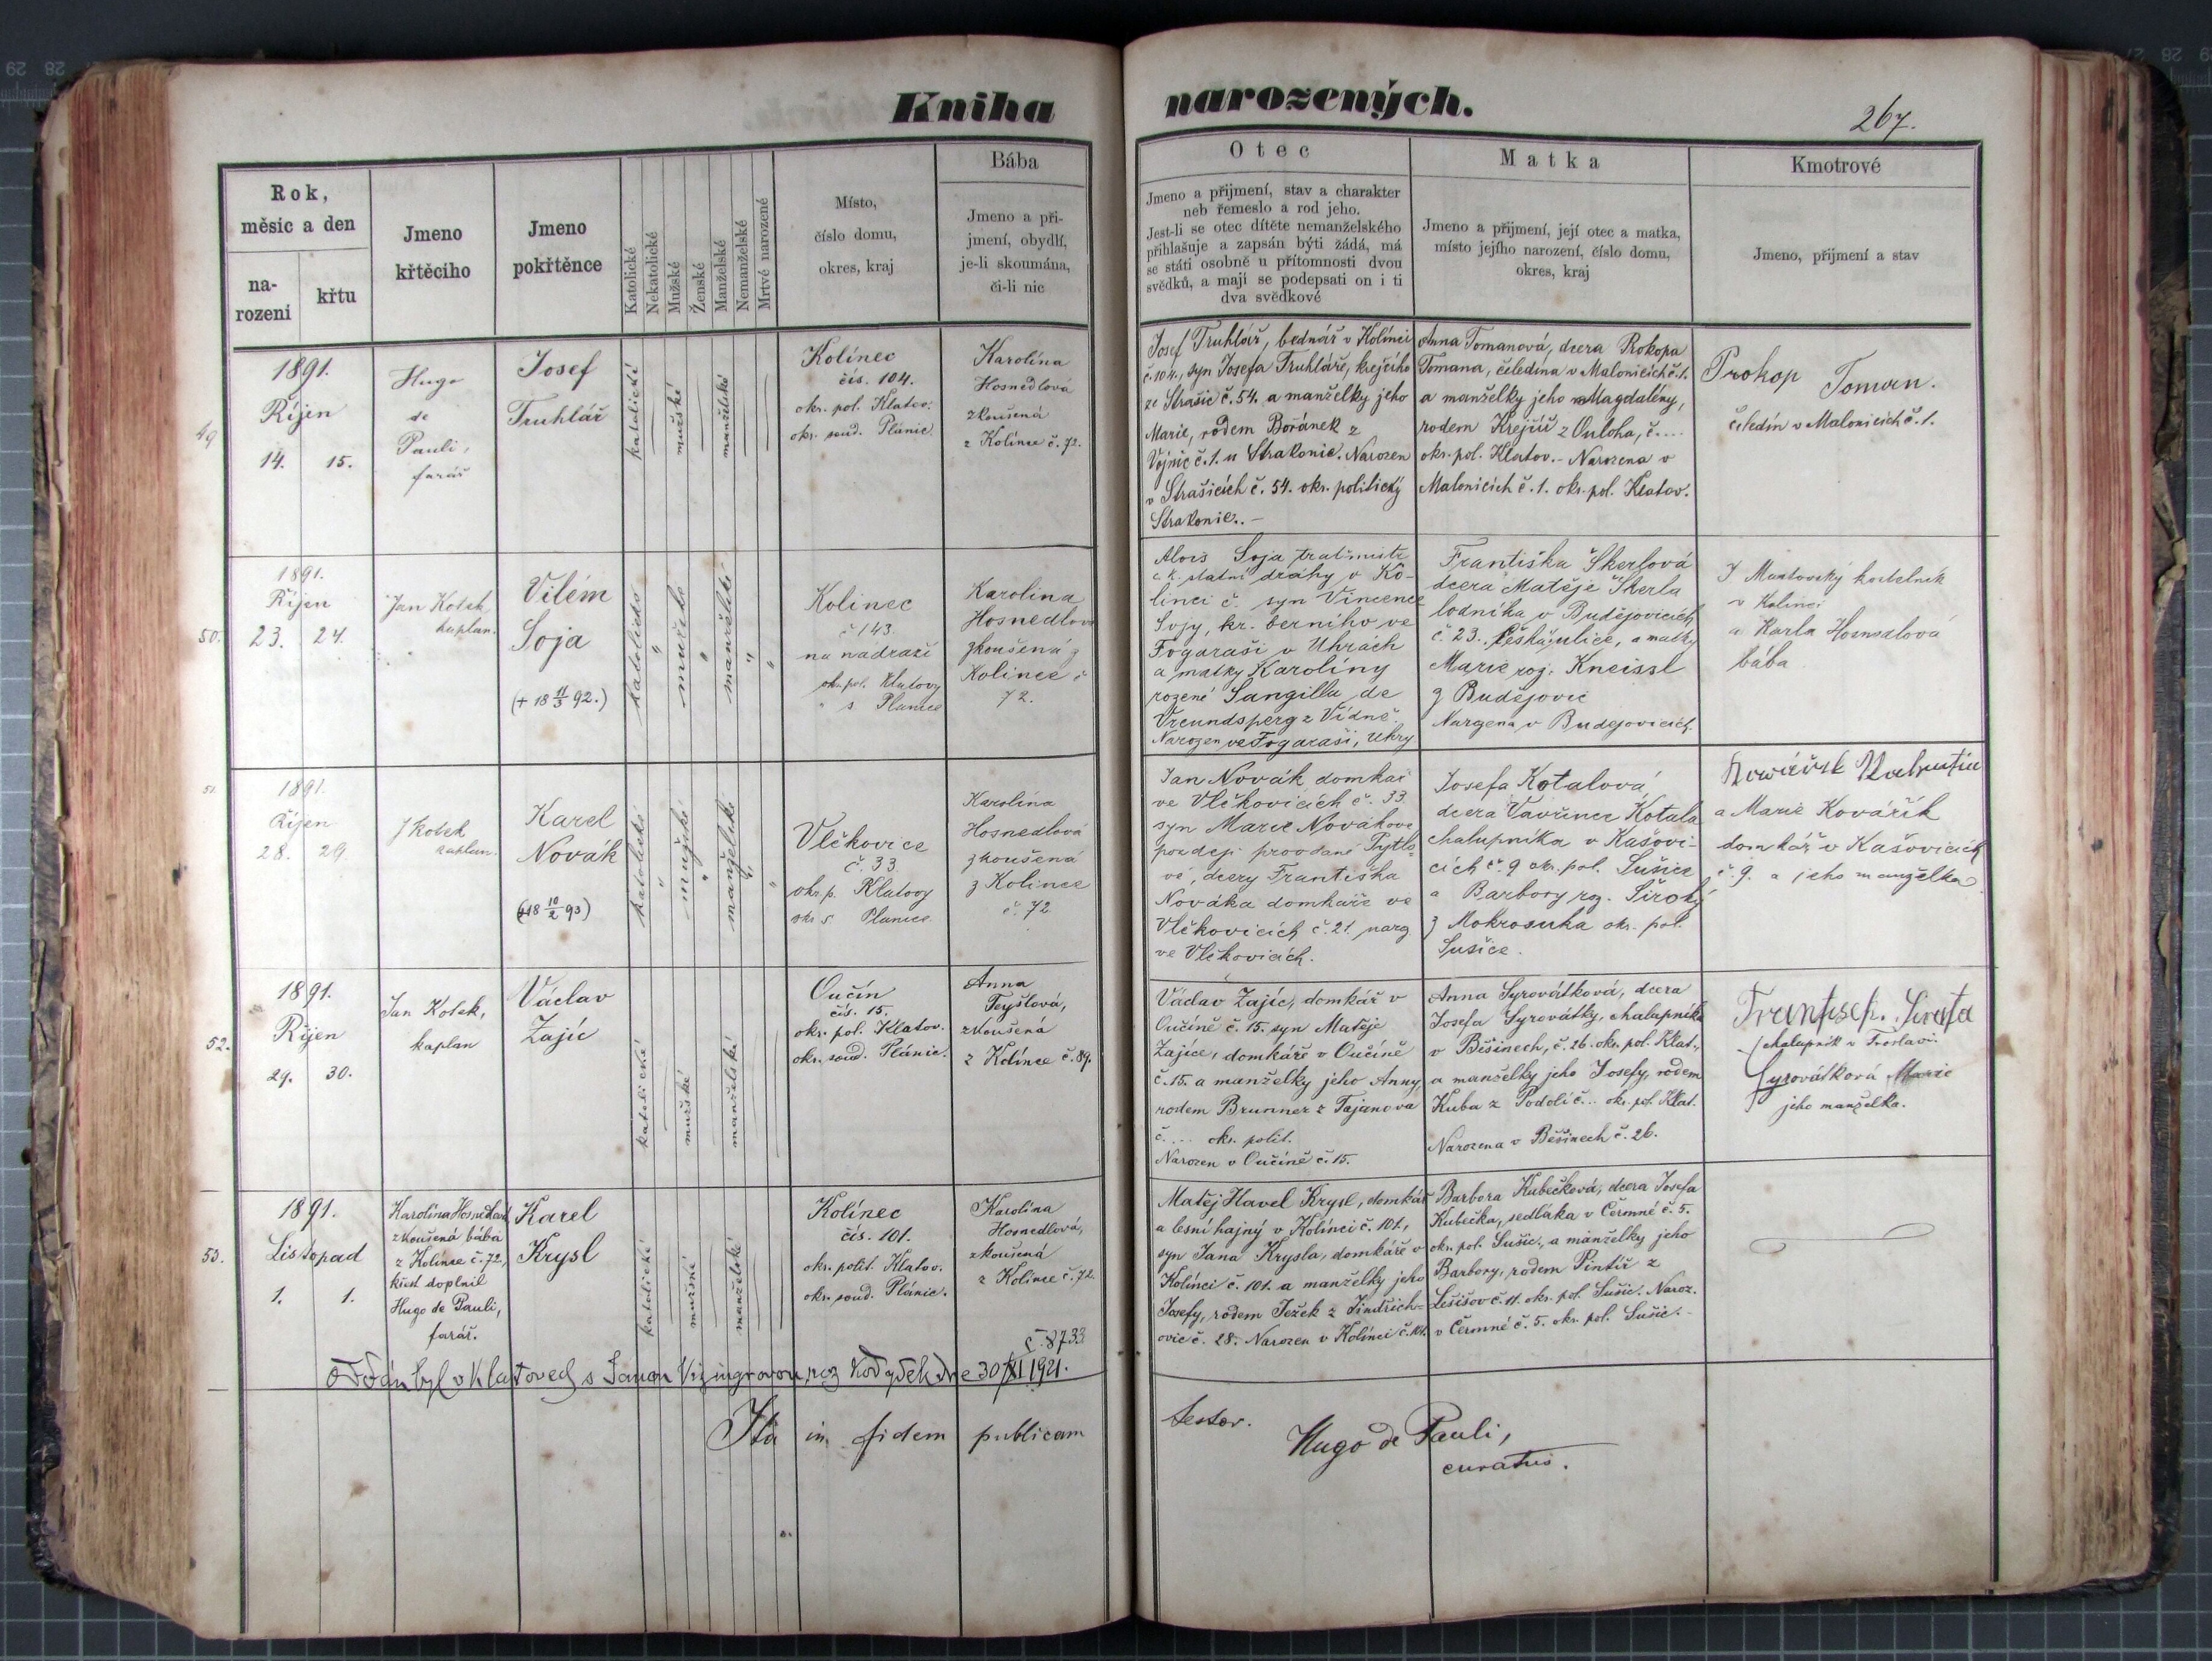 Kniha narozených.
267.
Rok,
měsíc a den
na-
rození
křtu
Jmeno
křtěcího
Jmeno
pokřtěnce
Katolické
Nekatolické
Mužské
Ženské
Manželské
Nemanželské
Mrtvé narozené
Místo,
číslo domu,
okres, kraj
Bába
Jmeno a při-
jmení, obydlí,
je-li skoumána,
či-li nic
Otec
Jmeno a přijmení, stav a charakter
neb řemeslo a rod jeho.
Jest-li se otec dítěte nemanželského
přihlašuje a zapsán býti žádá, má
se státi osobně u přítomnosti dvou
svědků, a mají se podepsati on i ti
dva svědkové
Matka
Jmeno a přijmení, její otec a matka,
místo jejího narození, číslo domu,
okres, kraj
Kmotrové
Jmeno, přijmení a stav
49
1891.
Říjen
14. 15.
Hugo
de
Pauli,
farář
Josef
Truhlář
katolické
mužské
manželské
Kolínec
čís. 104.
okr. pol. Klatov.
okr. soud. Plánic.
Karolína
Hosnedlová
zkoušená
z Kolínce č. 72.
Josef Truhlář, bednář v Kolínci
č. 104., syn Josefa Truhláře, krejčího
ze Strašic č. 54. a manželky jeho
Marie, rodem Bořánek z
Vojnic č. 1. u Strakonic. Narozen
v Strašicích č. 54. okr. politický
Strakonic. –
Anna Tomanová, dcera Prokopa
Tomana, čeledína v Malonicích č. 1.
a manželky jeho Magdalény,
rodem Krejčí z Ouloha, č....
okr. pol. Klatov. – Narozena v
Malonicích č. 1. okr. pol. Klatov.
Prokop Toman.
čeledín v Malonicích č. 1.
50.
1891.
Říjen
23. 24.
Jan Kotek
kaplan.
Vilém
Soja
(+ 18 11/3 92.)
katolické
"
mužské
"
manželské
"
"
Kolinec
č 143.
na nádraží
okr. pol. Klatovy
" s Planice
Karolina
Hosnedlova
zkoušená z
Kolince č
72.
Alois Soja, traťmistr
c. k. statní dráhy v Ko-
linci č. syn Vincence
Sojy, kr. berního ve
Fogaraši v Uhrách
a matky Karolíny
rozené Sangilla de
Vreundsperg z Vídně.
Narozen ve Fogaraši, Uhry
Františka Škerlová
dcera Matěje Škerla
lodníka v Budějovicích
č. 23., česká ulice, a matky
Marie roz. Kneissl
z Budějovic
Narozena v Budějovicích.
J Mantovský kostelník
v Kolinci
a Karla Hosnedlová
bába
51.
1891.
Říjen
28. 29.
J Kotek
kaplan.
Karel
Novák
(+18 10/2 93)
katolické
"
mužské
"
manželské
"
"
Vlčkovice
č. 33.
okr. p. Klatovy
okr s Planice
Karolína
Hosnedlová
zkoušená
z Kolince
č. 72
Jan Novák domkař
ve Vlčkovicích č. 33.
syn Marie Novákove
pozdeji provdané Pytlo-
vé, dcery Františka
Nováka domkáře ve
Vlčkovicích č. 21. narz
ve Vlčkovicích.
Josefa Kotalová
dcera Vavřince Kotala
chalupníka v Kašovi-
cích č 9 okr. pol. Sušice
a Barbory roz. Široký
z Mokrosuka okr. pol.
Sušice.
a Marie Kovářík
domkář v Kašovicích
č. 9. a jeho manželka
52.
1891.
Říjen
29. 30.
Jan Kotek,
kaplan
Václav
Zajíc
katolické
mužské
manželské
Oučín
čís. 15.
okr. pol. Klatov.
okr. soud. Plánic.
Anna
Feyštová,
zkoušená
z Kolínce č. 89.
Václav Zajíc, domkář v
Oučíně č. 15. syn Matěje
Zajíce, domkáře v Oučíně
č. 15. a manželky jeho Anny,
rodem Brunner z Tajanova
č.... okr. polit.
Narozen v Oučíně č. 15.
Anna Syrovátková, dcera
Josefa Syrovátky, chalupníka
v Běšinech, č. 26. okr. pol. Klat.,
a manželky jeho Josefy, rodem
Kuba z Podolí č... okr. pol. Klat.
Narozena v Běšinech č. 26.
chalupník v
Syrovátková Marie
jeho manželka.
53.
1891.
Listopad
1. 1.
Karolína Hosnedlová
zkoušená bába
z Kolínce č. 72,
křest doplnil
Hugo de Pauli,
farář.
Karel
Krysl
katolické
mužské
manželské
Kolínec
čís. 101.
okr. polit. Klatov.
okr. soud. Plánic.
Karolína
Hosnedlová,
zkoušená
z Kolínce č. 72.
Matěj Havel Krysl, domkář
a lesní hajný v Kolínci č. 101,
syn Jana Krysla, domkáře v
Kolínci č. 101. a manželky jeho
Josefy, rodem Ježek z Jindřich-
ovic č. 28. Narozen v Kolínci č. 101.
Barbora Kubečková, dcera Josefa
Kubečka, sedláka v Čermné č. 5.
okr. pol. Sušic., a manželky jeho
Barbory, rodem Pintíř z
Lešišov č. 11. okr. pol. Sušic. Naroz.
v Čermné č. 5. okr. pol. Sušic. –
č. 8733
oddán byl v Klatovech s Janou roz dne 30/XI 1921.
Ita in fidem publicam
testor.
Hugo de Pauli,
curatus.